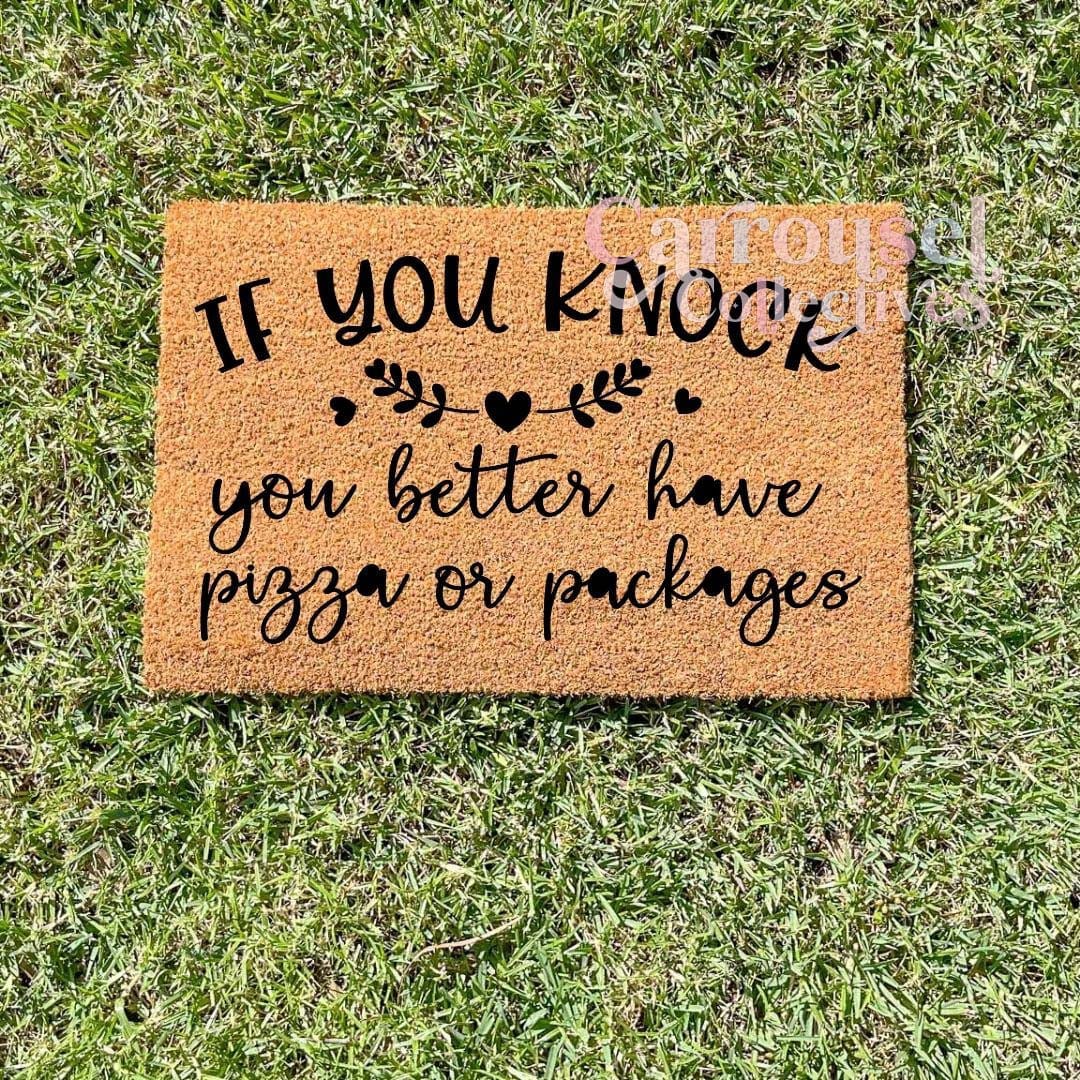 IF YOU KNOCK
you better have
pizza or packages
Carrousel
Collectives